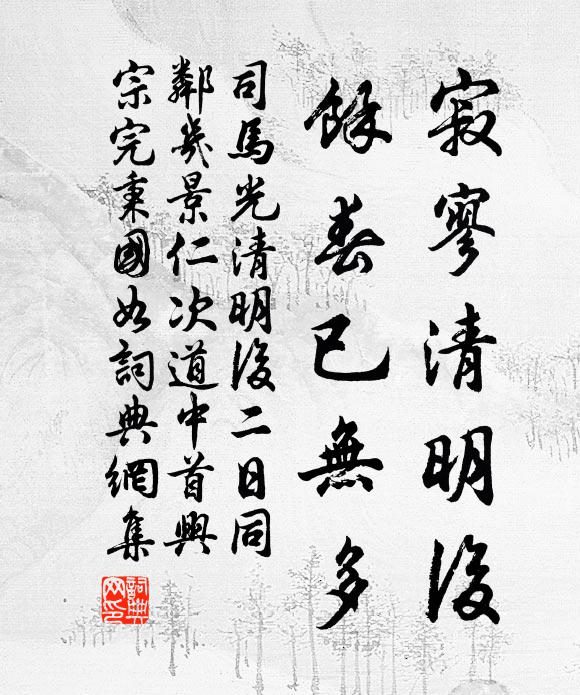 寂寥清明後
餘春已無多
司馬光清明後二日同
鄰幾景仁次道中首興
宗完秉國如詞典網集
詞典